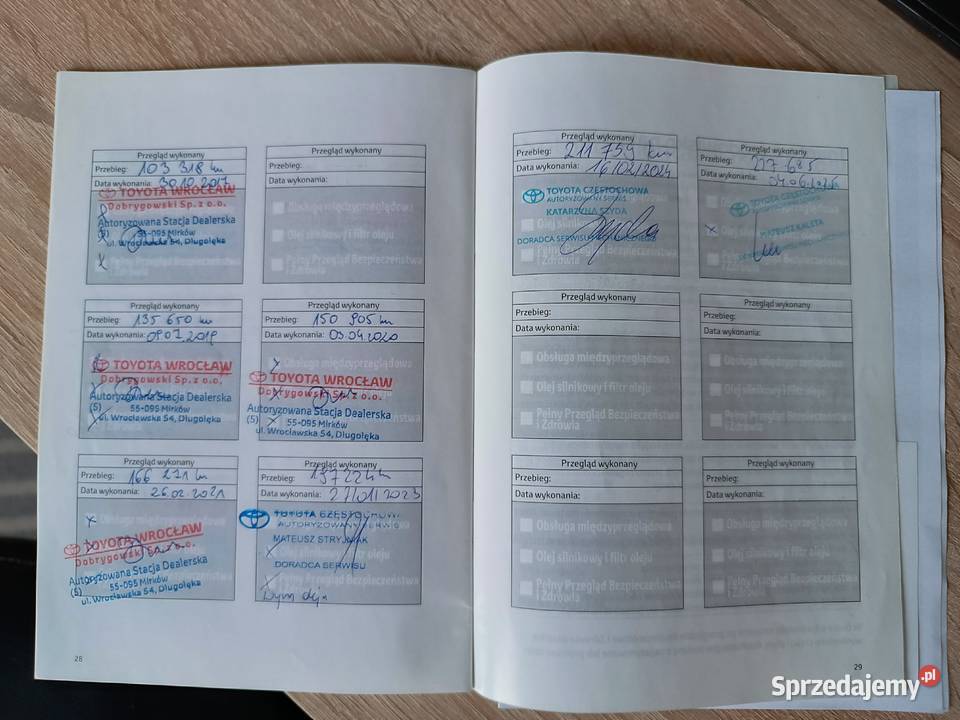 Przegląd wykonany
Przebieg: 103 318 km
Data wykonania: 30.10.2017
TOYOTA WROCŁAW
Dobrygowski Sp. z o.o.
Autoryzowana Stacja Dealerska
(5) 55-095 Mirków
ul. Wrocławska 54, Długołęka
Przegląd wykonany
Przebieg:
Data wykonania:
Obsługa międzyprzeglądowa
Olej silnikowy i filtr oleju
Pełny Przegląd Bezpieczeństwa
i Zdrowia
Przegląd wykonany
Przebieg: 135 650 km
Data wykonania: 09.07.2019
TOYOTA WROCŁAW
Dobrygowski Sp. z o.o.
Autoryzowana Stacja Dealerska
(5) 55-095 Mirków
ul. Wrocławska 54, Długołęka
Przegląd wykonany
Przebieg: 150 905 km
Data wykonania: 03.04.2020
Obsługa międzyprzeglądowa
TOYOTA WROCŁAW
Dobrygowski Sp. z o.o.
Autoryzowana Stacja Dealerska
(5) 55-095 Mirków
ul. Wrocławska 54, Długołęka
Przegląd wykonany
Przebieg: 166 271 km
Data wykonania: 26.02.2021
TOYOTA WROCŁAW
Dobrygowski Sp. z o.o.
Autoryzowana Stacja Dealerska
(5) 55-095 Mirków
ul. Wrocławska 54, Długołęka
Przegląd wykonany
Przebieg:
Data wykonania: 27/01/2023
TOYOTA CZĘSTOCHOWA
AUTORYZOWANY SERWIS
MATEUSZ STRYJNIAK
DORADCA SERWISU
28
Przegląd wykonany
Przebieg: 211 759 km
Data wykonania: 16/02/2024
TOYOTA CZĘSTOCHOWA
AUTORYZOWANY SERWIS
KATARZYNA SZYDA
DORADCA SERWISU
Pełny Przegląd Bezpieczeństwa
i Zdrowia
Przegląd wykonany
Przebieg: 227 685
Data wykonania:
TOYOTA CZĘSTOCHOWA
MATEUSZ KALETA
Przegląd wykonany
Przebieg:
Data wykonania:
Obsługa międzyprzeglądowa
Olej silnikowy i filtr oleju
Pełny Przegląd Bezpieczeństwa
i Zdrowia
Przegląd wykonany
Przebieg:
Data wykonania:
Obsługa międzyprzeglądowa
Olej silnikowy i filtr oleju
Pełny Przegląd Bezpieczeństwa
i Zdrowia
Przegląd wykonany
Przebieg:
Data wykonania:
Obsługa międzyprzeglądowa
Olej silnikowy i filtr oleju
Pełny Przegląd Bezpieczeństwa
i Zdrowia
Przegląd wykonany
Przebieg:
Data wykonania:
Obsługa międzyprzeglądowa
Olej silnikowy i filtr oleju
Pełny Przegląd Bezpieczeństwa
i Zdrowia
29
Sprzedajemy.pl